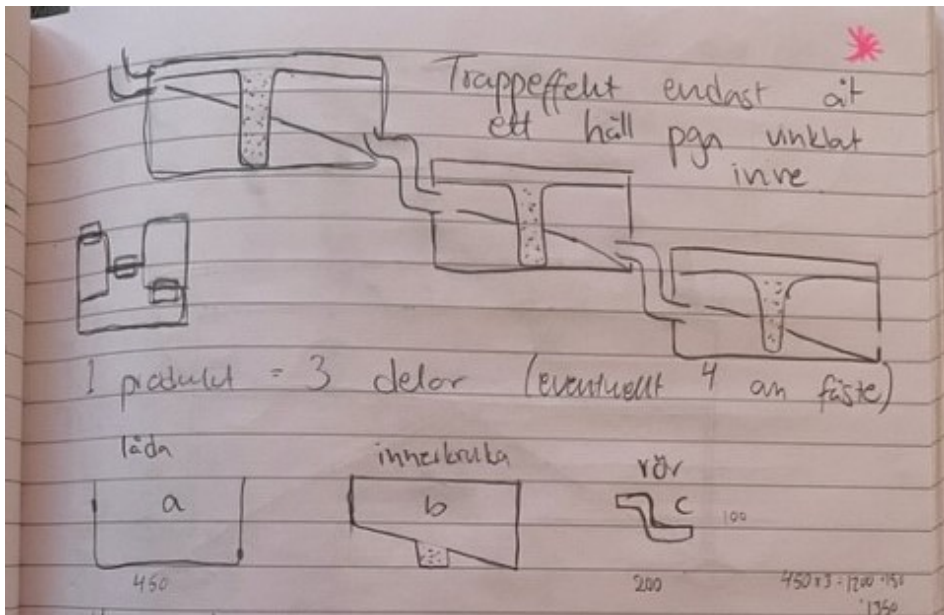 Trappeffekt endast åt
ett håll pga vinklat
inre
1 produkt = 3 delar (eventuellt 4 om fäste)
låda
innerkruka
rör
a
b
c
100
450
200
450x3=1200+150
1350